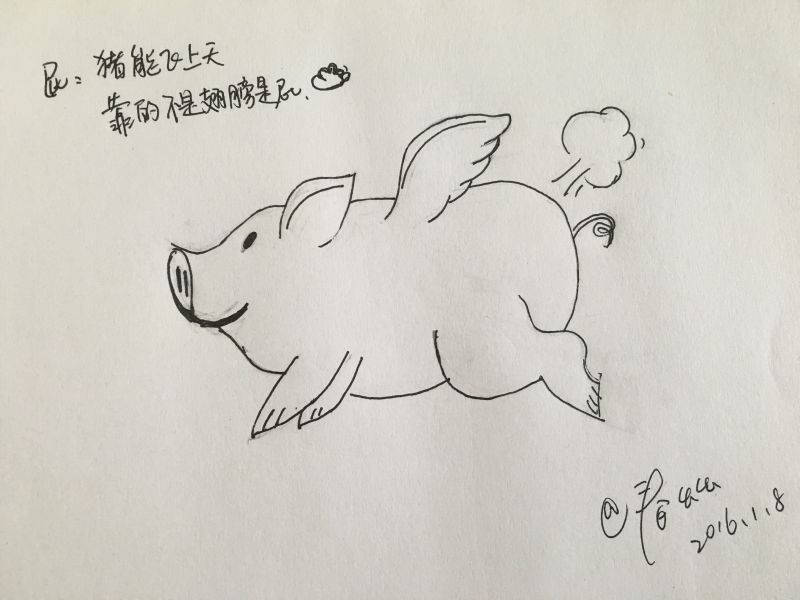 屁：猪能飞上天
靠的不是翅膀是屁.
2016.1.8